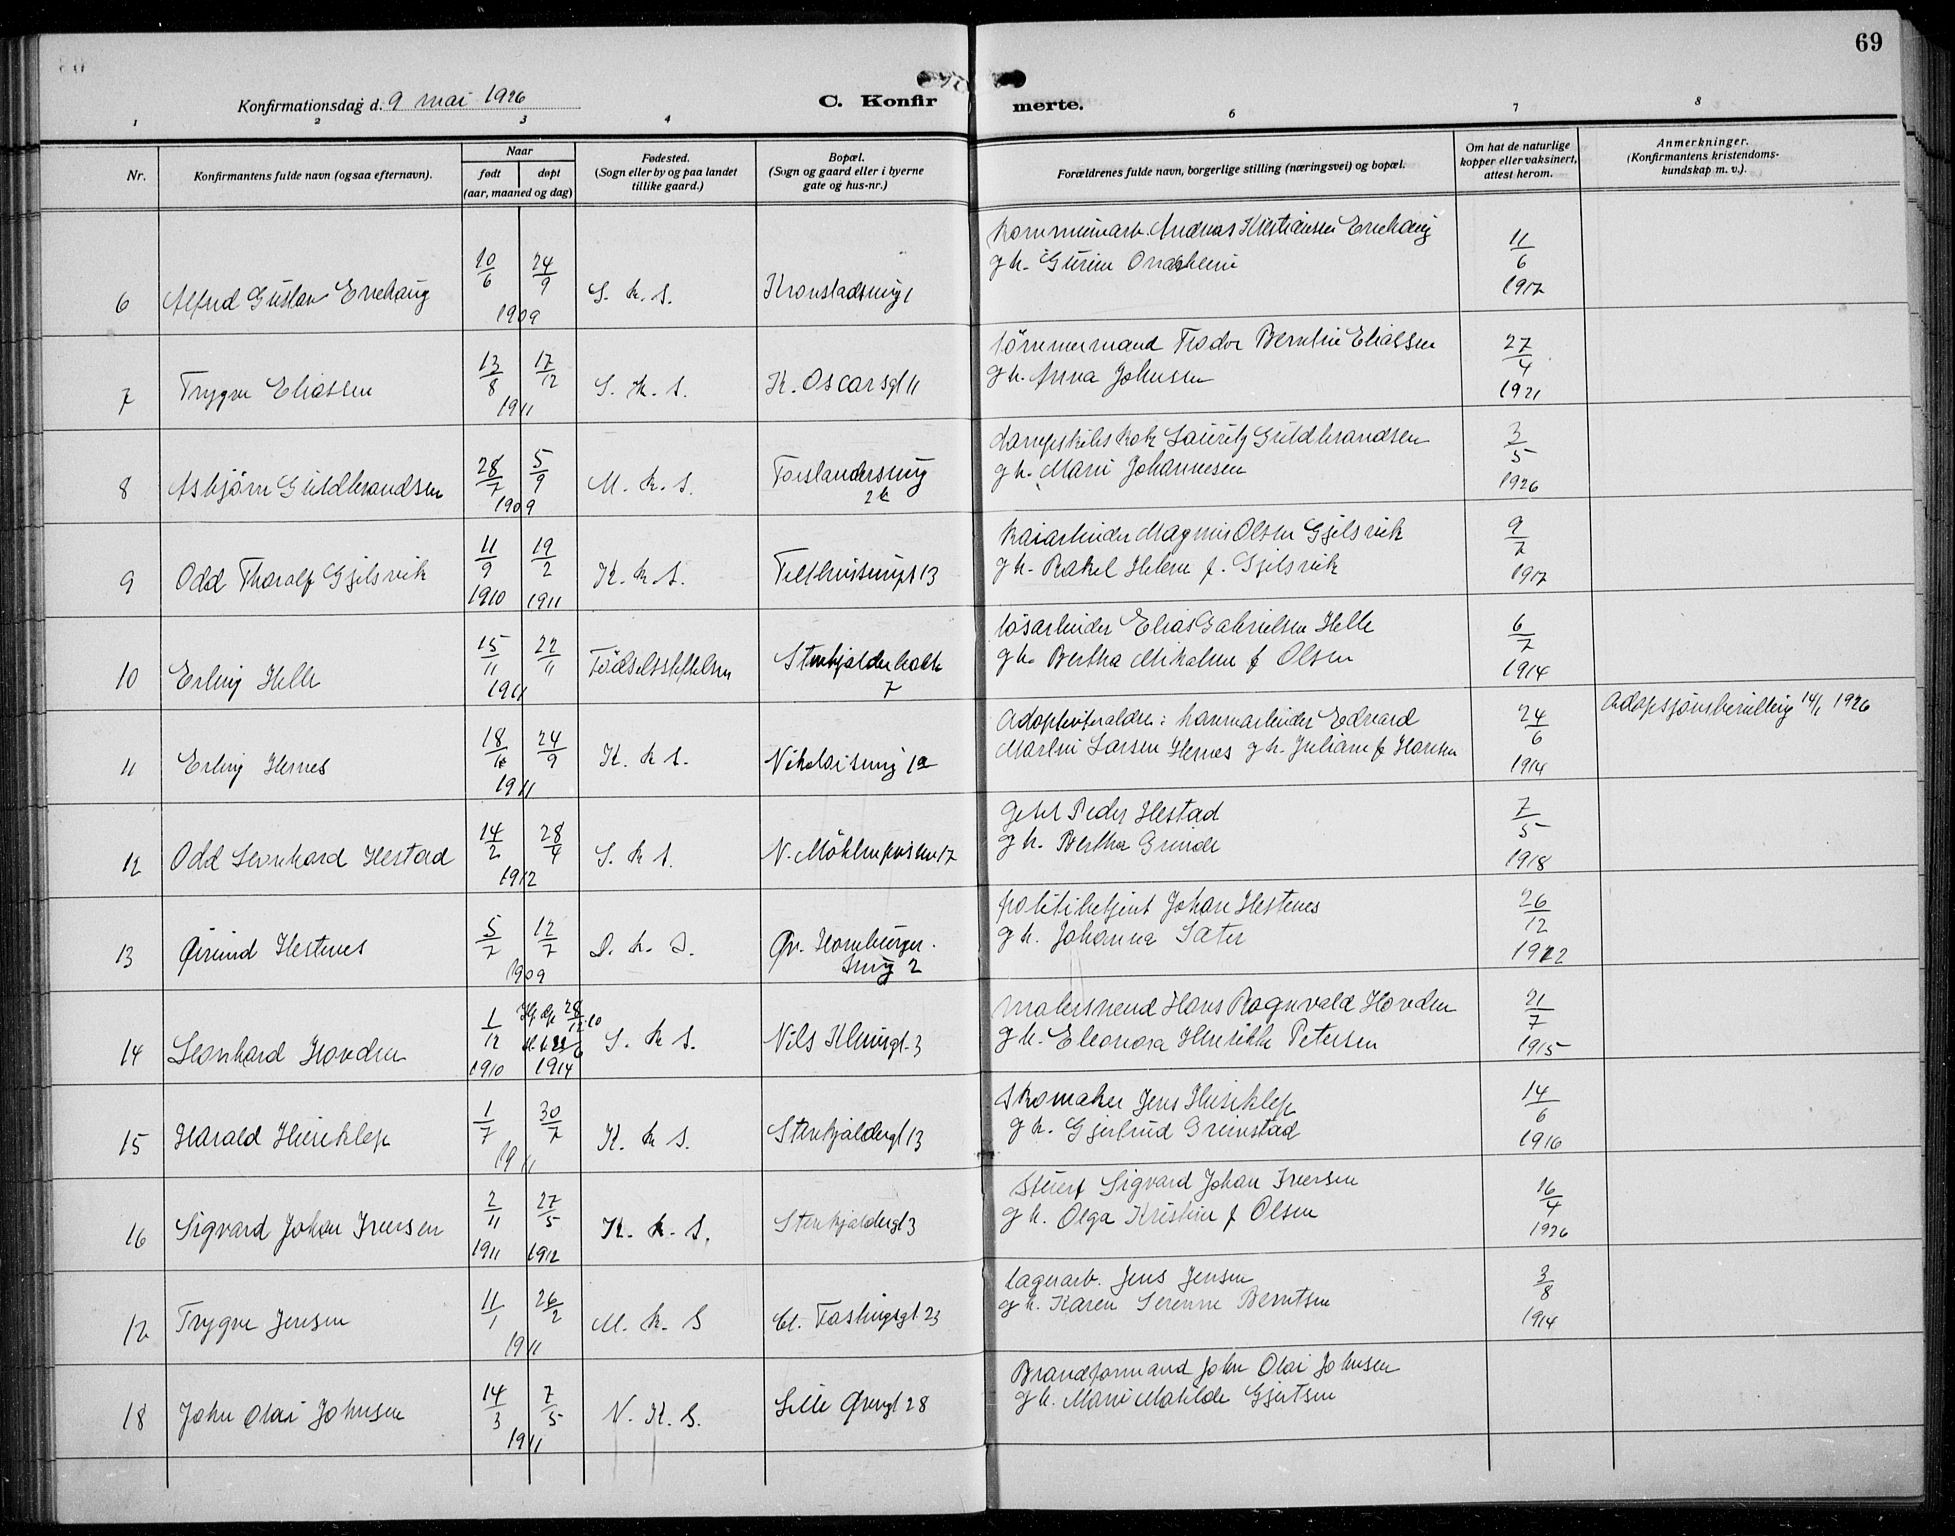 69
Konfirmationsdag d. 9 mai 1926
C. Konfir merte.
1 2 3 4 6 7 8
Nr.
Konfirmantens fulde navn (ogsaa efternavn).
Naar
født døpt
(aar, maaned og dag)
Fødested.
(Sogn eller by og paa landet
tillike gaard.)
Bopæl.
(Sogn og gaard eller i byerne
gate og hus-nr.)
Forældrenes fulde navn, borgerlige stilling (næringsvei) og bopæl.
Om hat de naturlige
kopper eller vaksinert,
attest herom.
Anmerkninger.
(Konfirmantens kristendoms-
kundskap m. v.).
6 Alfred Gustav Ervehaug 10/6 24/9 1909 S. k. s. Kronstadsveig 1
kommunearb. Andreas Kristiansen Ervehaug
g h. Gurine 11/6 1917
7 Trygve Eliassen 13/8 17/12 1911 S. K. s. K. Oscarsgt 11
tömmermand Teodor Berntin Eliassen
g h. Anna Johnsen 27/4 1921
8 Asbjörn Guldbrandsen 28/7 5/9 1909 M. k. s. Forslandersmug
2 b
dampskibskok Lauritz Guldbrandsen
g h. Marie Johannesen 3/5 1926
9 Odd Tharalf Gjelsvik 11/9 1910 19/2 1911 K. k. s.
kaiarbeider Magnus Olsen Gjelsvik
g h. Rakel Helene f. Gjelsvik 9/7 1917
10 Erling Helle 15/11 22/11 1911 Födselsstiftelsen Stenkjelderbakk
7
lösarbeider Elias Gabrielsen Helle
g h. Bertha Mikaline f Olsen 6/7 1914
11 Erling Hernes 18/6 24/9 1911 K. k s. Nikolaismug 1a
Adoptivforældre: havnearbeider Edvard
Martin Larsen Hernes g h. Juliane f Hansen 24/6 1914
Adopsjonsbevilling 14/1 1926
12 Odd Leonhard Hestad 14/2 28/4 1912 S. k s. N. Möhlenprisen 17
Peder Hestad
g h. Bertha Grinde 7/5 1918
13 Øivind Hestenes 5/7 12/7 1909 D. k. S. Øv. Hamburger-
smug 2
politibetjent Johan Hestenes
g h. Johanna Sæter 26/12 1922
14 Leonhard Hovden 1/12 1910 Hj dp 28/12.10 1914 S. k s. Nils Klimsgt. 3
malersvend Hans Ragnvald Hovden
g h. Eleonora Henrikke Petersen 21/7 1915
15 Harald Huseklep 1/7 30/7 1911 K. k s. Stenkjeldergt 13
Skomaker Jens Huseklep
g h. Gjertrud Grimstad 14/6 1916
16 Sigvard Johan Iversen 2/11 1911 27/5 1912 K. k. s. Stenkjeldergt 3
Stuert Sigvard Johan Iversen
g h. Olga Kristine f Olsen 16/4 1926
17 Trygve Jensen 11/1 26/2 1911 M. k. S Cl. Fastingsgt 23
lagerarb. Jens Jensen
g h. Karen Serenne Berntsen 3/8 1914
18 John Olai Johnsen 14/3 7/5 1911 N. K. S. Lille Øvregt 28
Brandformand John Olai Johnsen
g h. Marie Matilde Gjertsen